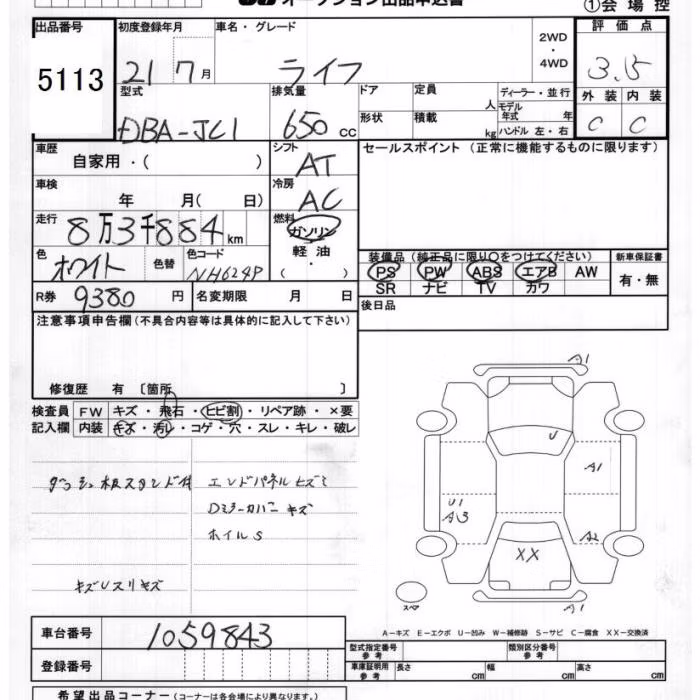 オークション出品申込書
①会場控
出品番号 初度登録年月 車名・グレード 2WD・4WD 評価点
5113 21 7月 ライフ 3.5
型式 排気量 ドア 定員 人 ディーラー・並行 外装 内装
DBA-JC1 650 cc 形状 積載 kg モデル年式 年 ハンドル 左・右 C C
車歴 シフト セールスポイント (正常に機能するものに限ります)
自家用・( ) AT
車検 冷房
年 月( 日) AC
走行 燃料
8万3千884km ガソリン
軽油
・( )
色 色替 色コード
ホワイト NH624P
装備品 (純正品に限り○をつけてください) 新車保証書
PS PW ABS エアB AW 有・無
SR ナビ TV カワ
R券 9380円 名変期限 月 日 後日品
注意事項申告欄(不具合内容等は具体的に記入して下さい)
修復歴 有 〔箇所 〕
検査員 FW キズ・飛石・ヒビ割・リペア跡・×要
記入欄 内装 キズ・汚レ・コゲ・穴・スレ・キレ・破レ
エンドパネルヒズミ
Dミラーカバーキズ
ホイルS
A1
U
A1
U1
A3
A2
XX
A1
スペア
A-キズ E-エクボ U-凹み W-補修跡 S-サビ C-腐食 XX-交換済
車台番号 1059843
登録番号
型式指定番号 参考 類別区分番号 参考
車庫証明用 参考 長さ cm 幅 cm 高さ cm
希望出品コーナー (コーナーは各会場により異なります。)